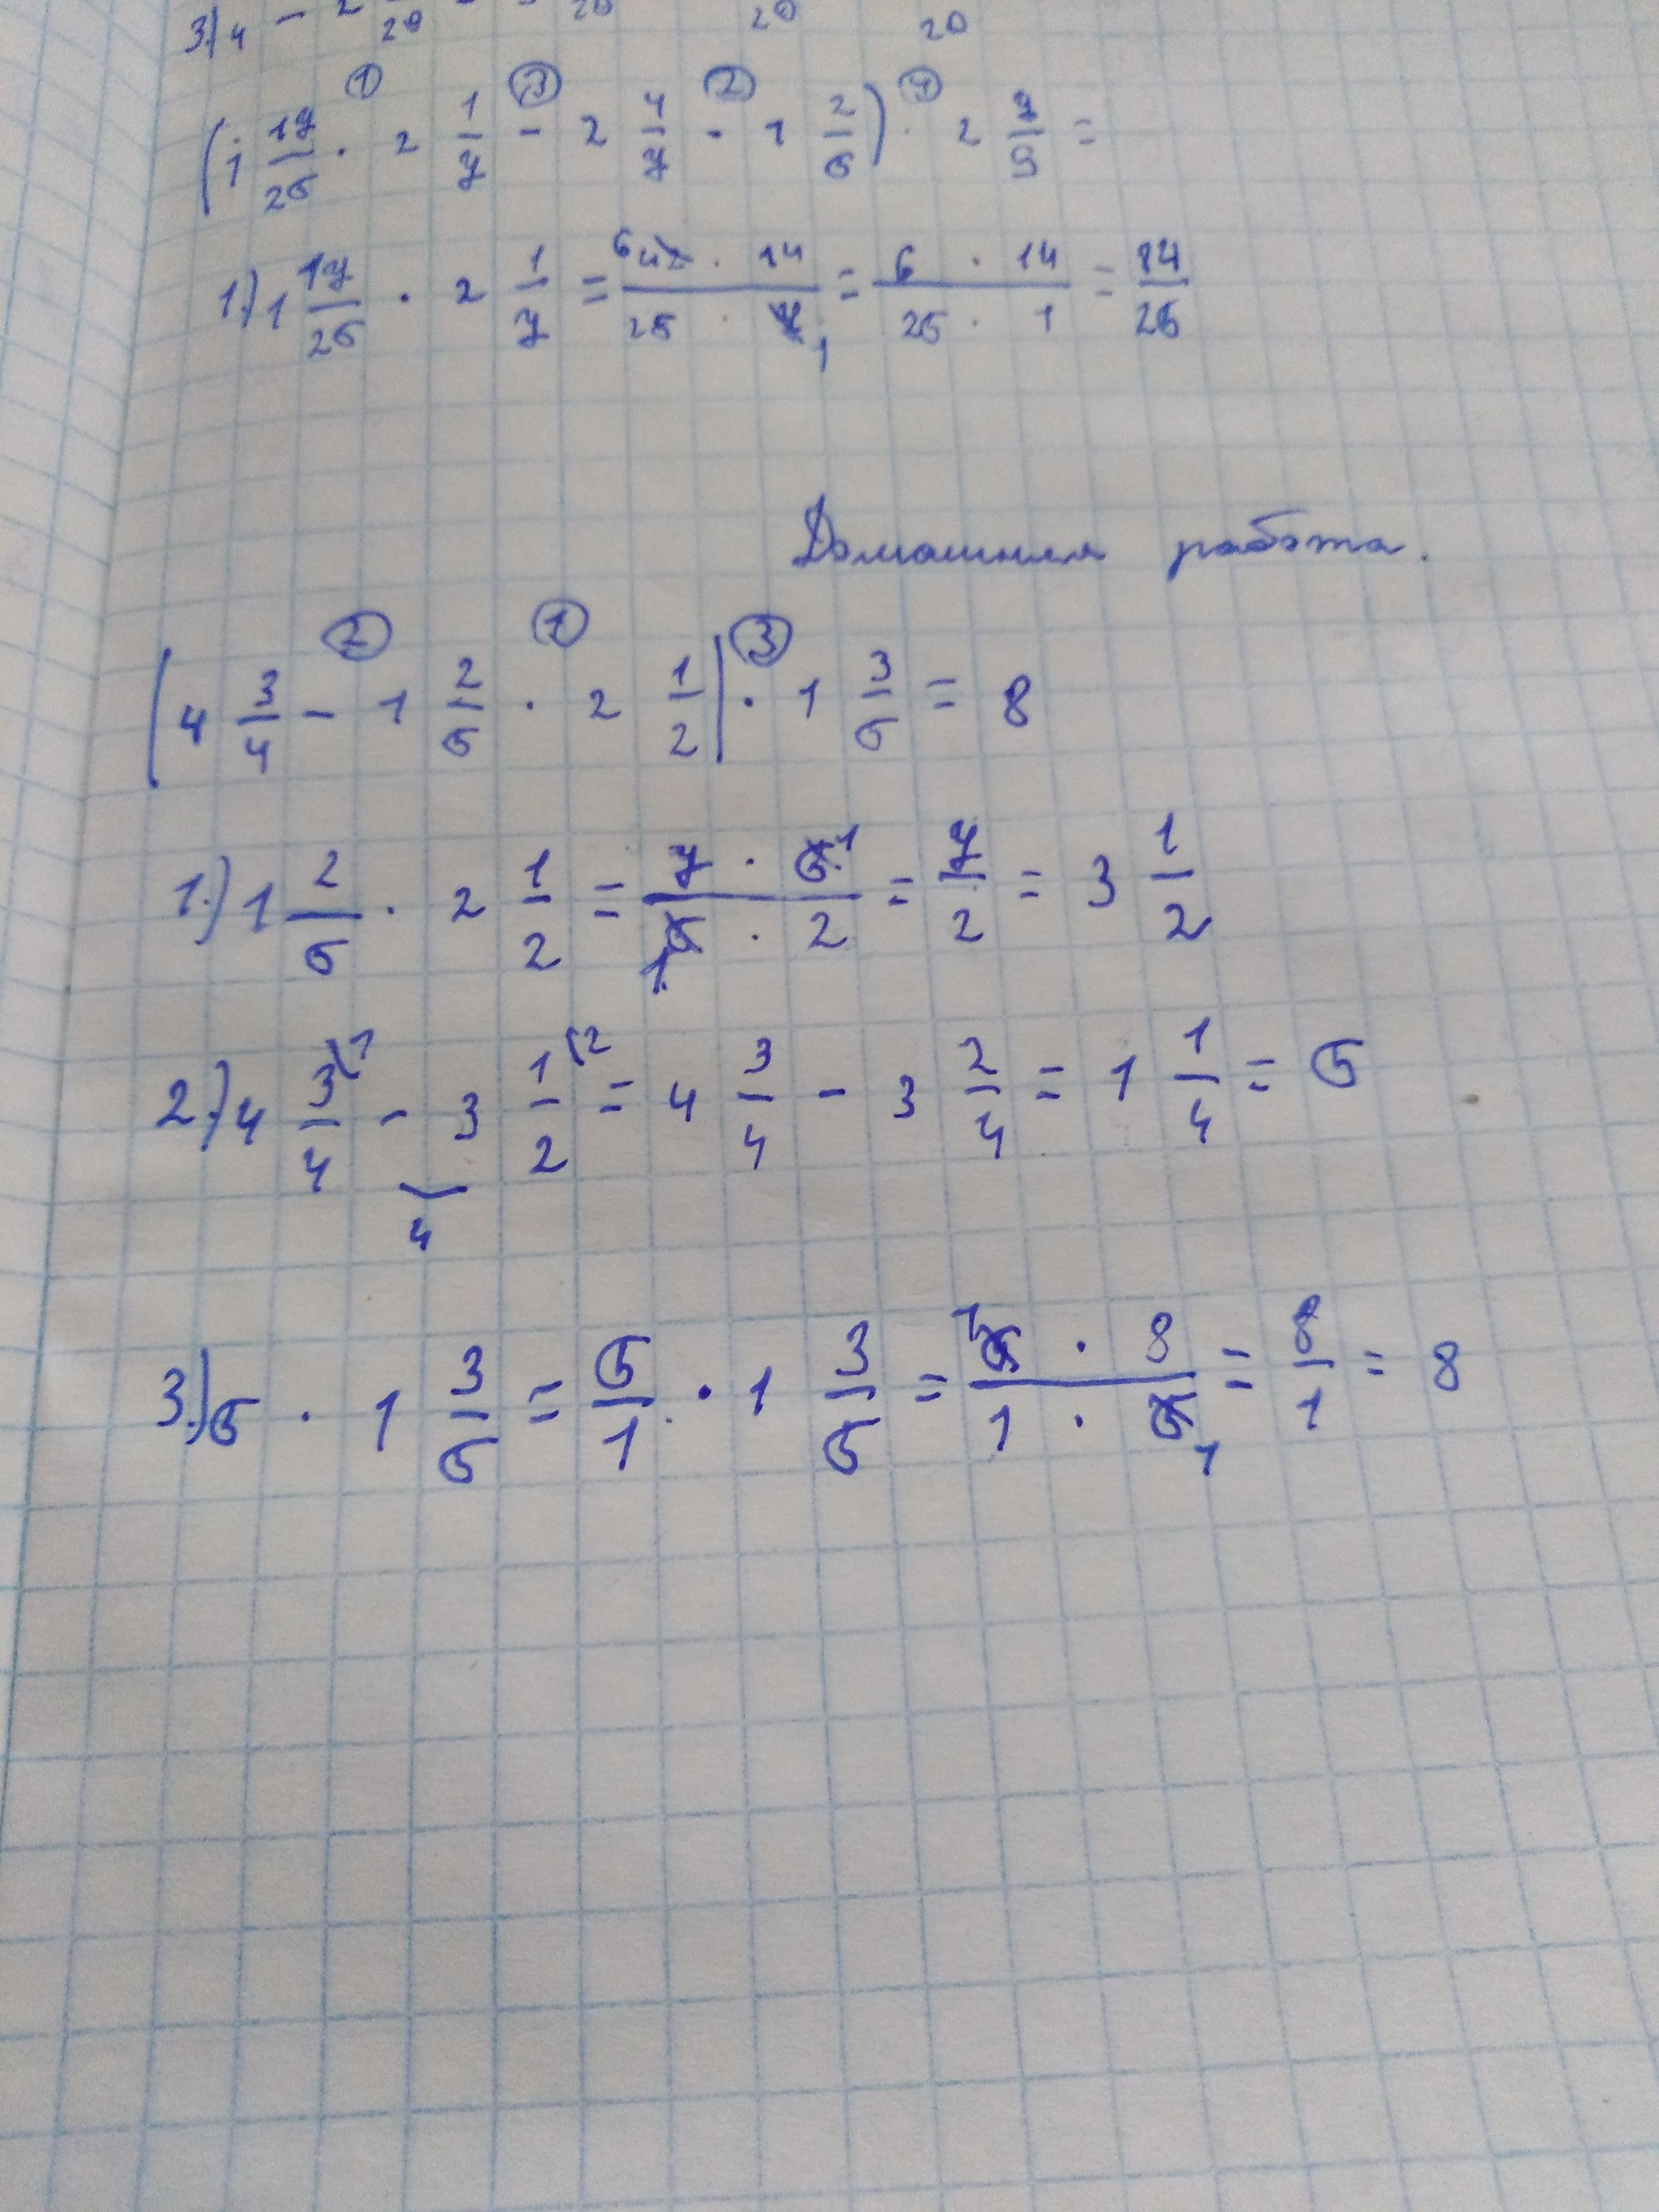 (1 17/25 · 2 1/7 - 2 4/7 · 1 2/5) · 2 7/9 =
1.) 1 17/25 · 2 1/7 = 42 · 14 / 25 · 7 = 6 · 14 / 25 · 1 = 84/25
Домашняя работа.
(4 3/4 - 1 2/5 · 2 1/2) · 1 3/5 = 8
1.) 1 2/5 · 2 1/2 = 7 · 5 / 5 · 2 = 7/2 = 3 1/2
2.) 4 3/4 - 3 1/2 = 4 3/4 - 3 2/4 = 1 1/4 = 5
4
3.) 5 · 1 3/5 = 5/1 · 1 3/5 = 5 · 8 / 1 · 5 = 8/1 = 8